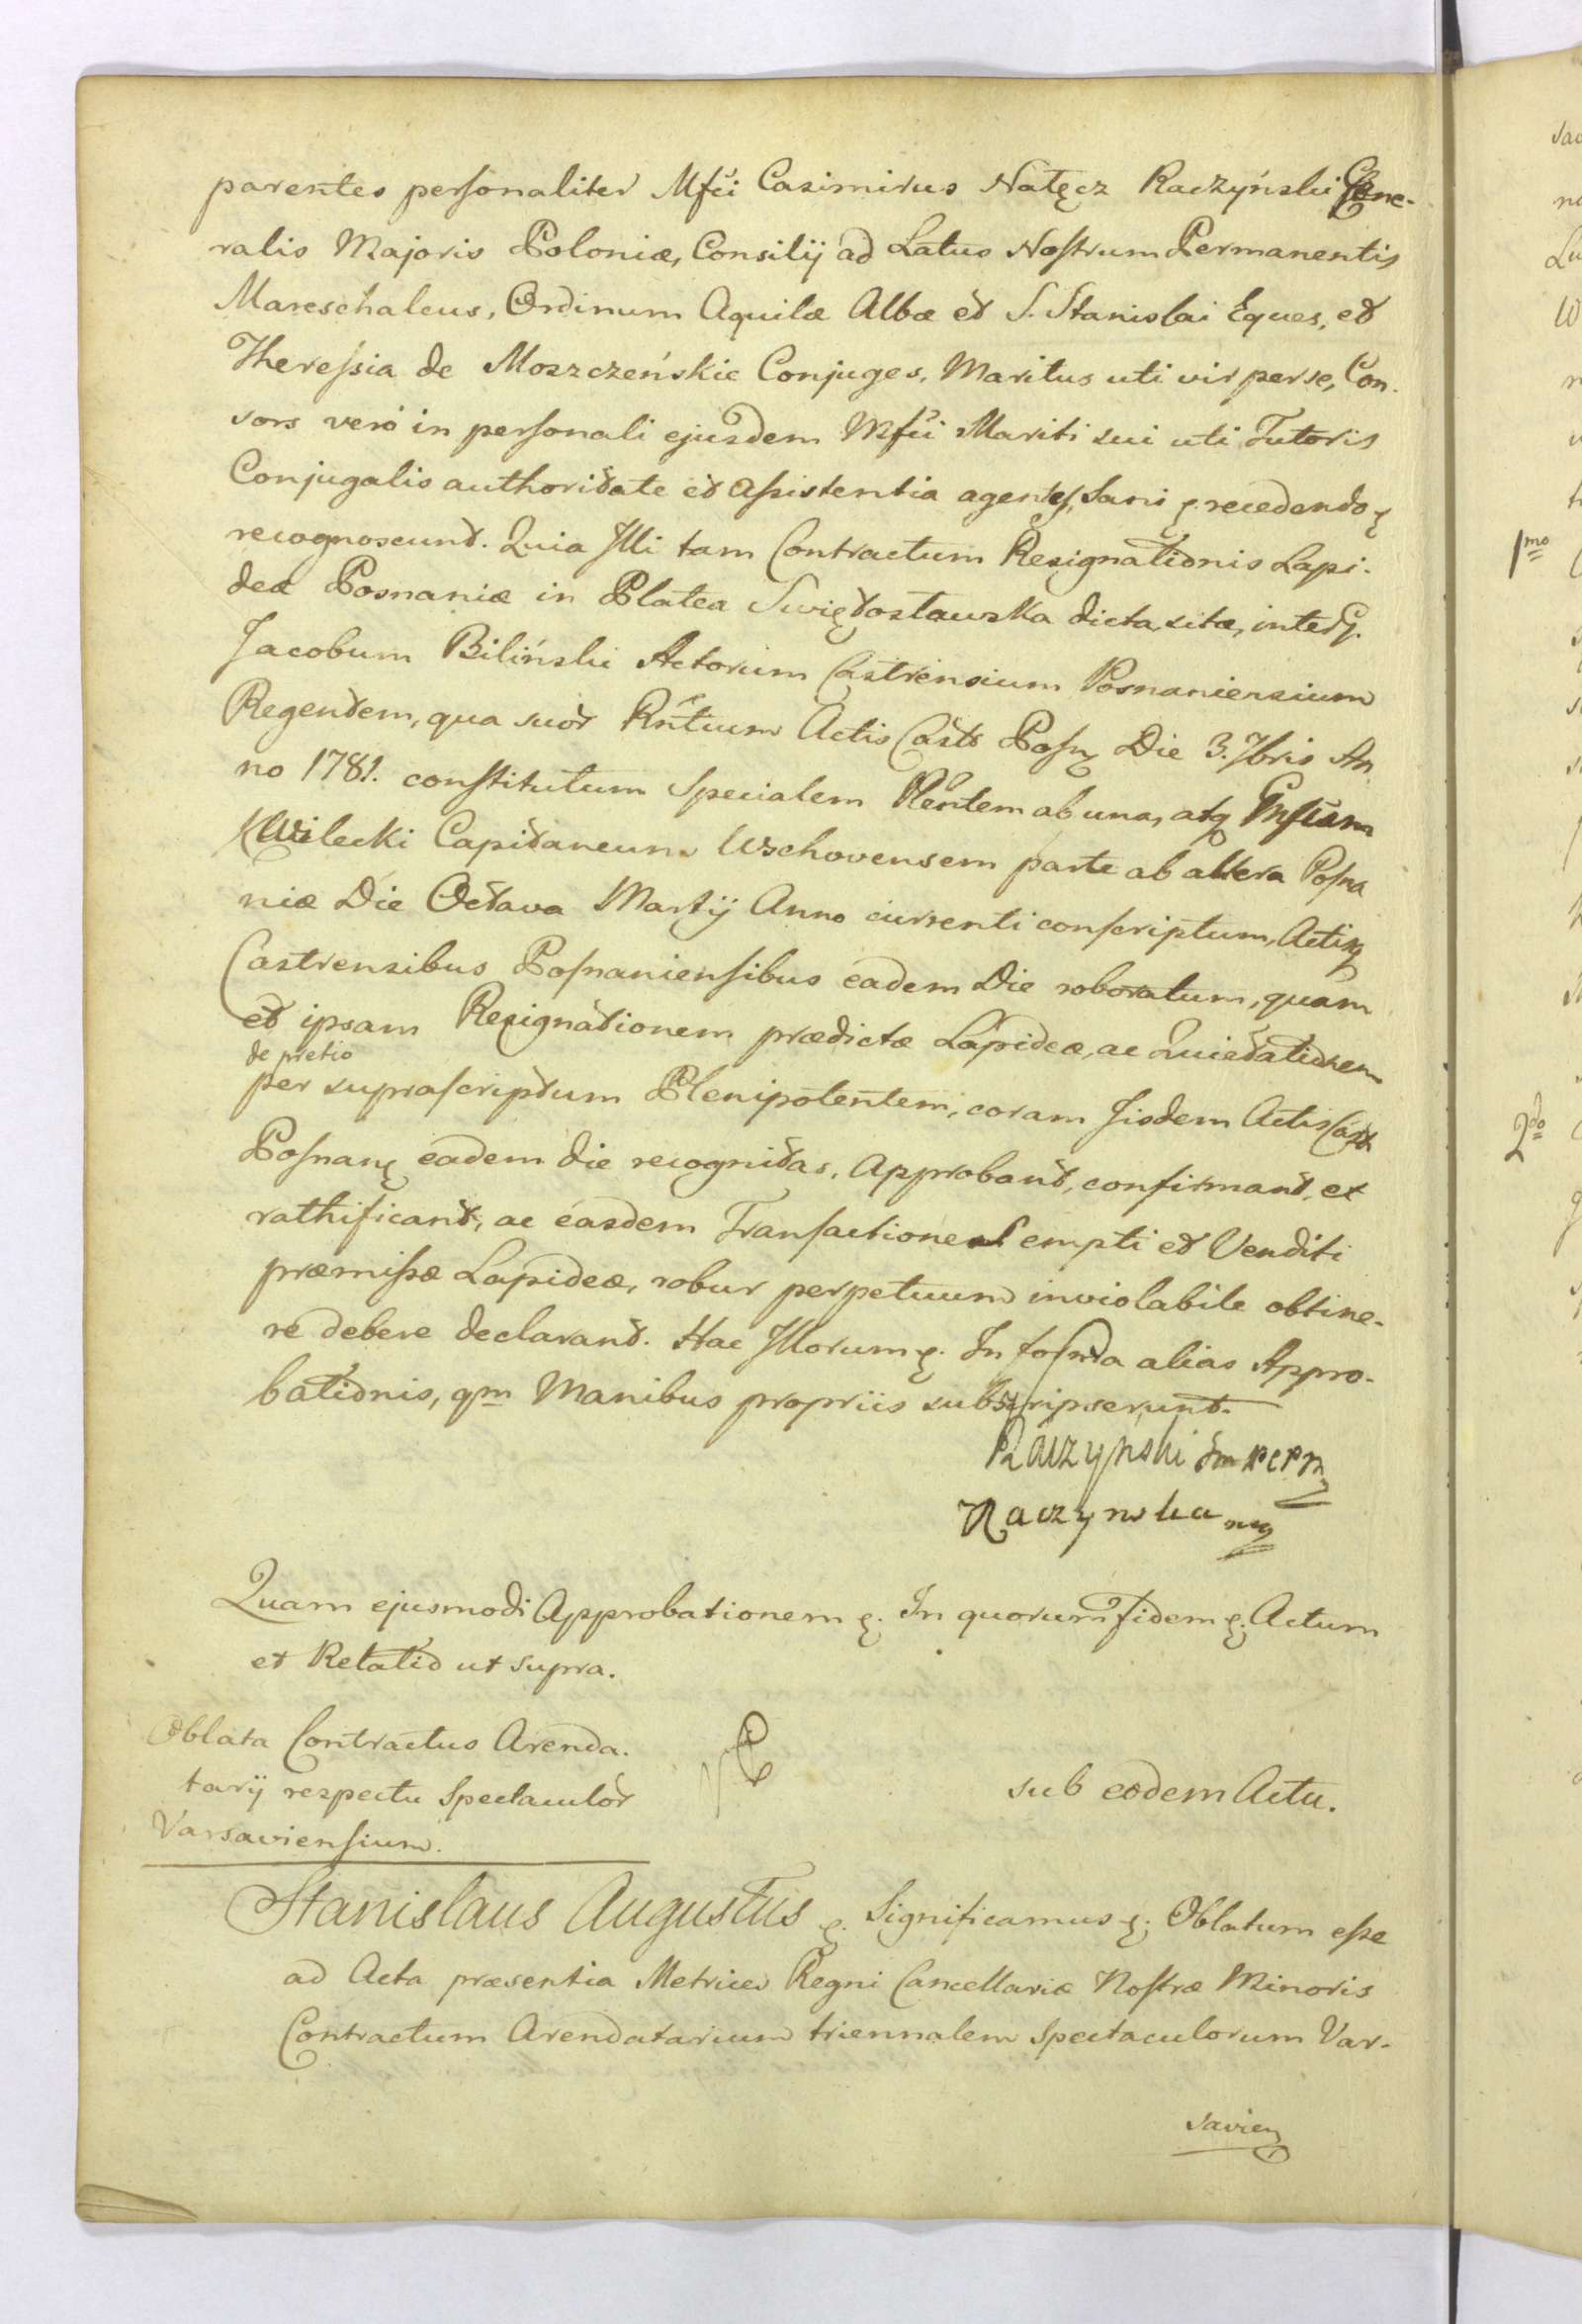 parentes personaliter Mfci Casimirus Nałęcz Raczyński Gene-
ralis Majoris Poloniæ, Consilij ad Latus Nostrum Permanentis
Mareschalcus, Ordinum Aquilæ Albæ et S. Stanislai Eques, et
Theressia de Moszczeńskie Conjuges, Maritus uti vir per se, Con-
sors vero in personali ejusdem Mfci Mariti sui uti Tutoris
Conjugalis authoritate et assistentia agentes, Sani &. recedendo &
recognoscunt. Quia Illi tam Contractum Resignationis Lapi-
deæ Posnaniæ in Platea Swiętosławska dicta, sitæ, inter G.
Jacobum Biliński Actorum Castrensium Posnaniensium
Regentem, qua suor Rntium Actis Castr Posn Die 3. 7bris An
no 1781. constitutum Specialem Plentem ab una, atq
Kwilecki Capitaneum Wschovensem parte ab altera Posna
niæ Die Octava Martij Anno currenti conscriptum, Actisq
Castrensibus Posnaniensibus eadem Die roboratum, quam
et ipsam Resignationem prædictæ Lapideæ, ac Quietationem
de pretio
per suprascriptum Plenipotentem, coram Iisdem Actis Castr
Posnan eadem die recognitas, Approbant, confirmant, et
rathificant, ac easdem Transactiones empti et Venditi
præmissæ Lapideæ, robur perpetuum inviolabile obtine-
re debere declarant. Hac Illorum &. In forma alias Appro-
bationis, qm Manibus propriis subscripserunt.
Raczyński
Raczynska mp
Quam ejusmodi Approbationem &. In quorum fidem &. Actum
et Relatio ut supra.
Oblata Contractus Arenda-
tarij respectu Spectaculor
Varsaviensium.
sub eodem Actu.
Stanislaus Augustus &. Significamus &. Oblatum esse
ad Acta præsentia Metrices Regni Cancellariæ Nostræ Minoris
Contractum Arendatarium triennalem Spectaculorum Var-
savien
1mo
2do